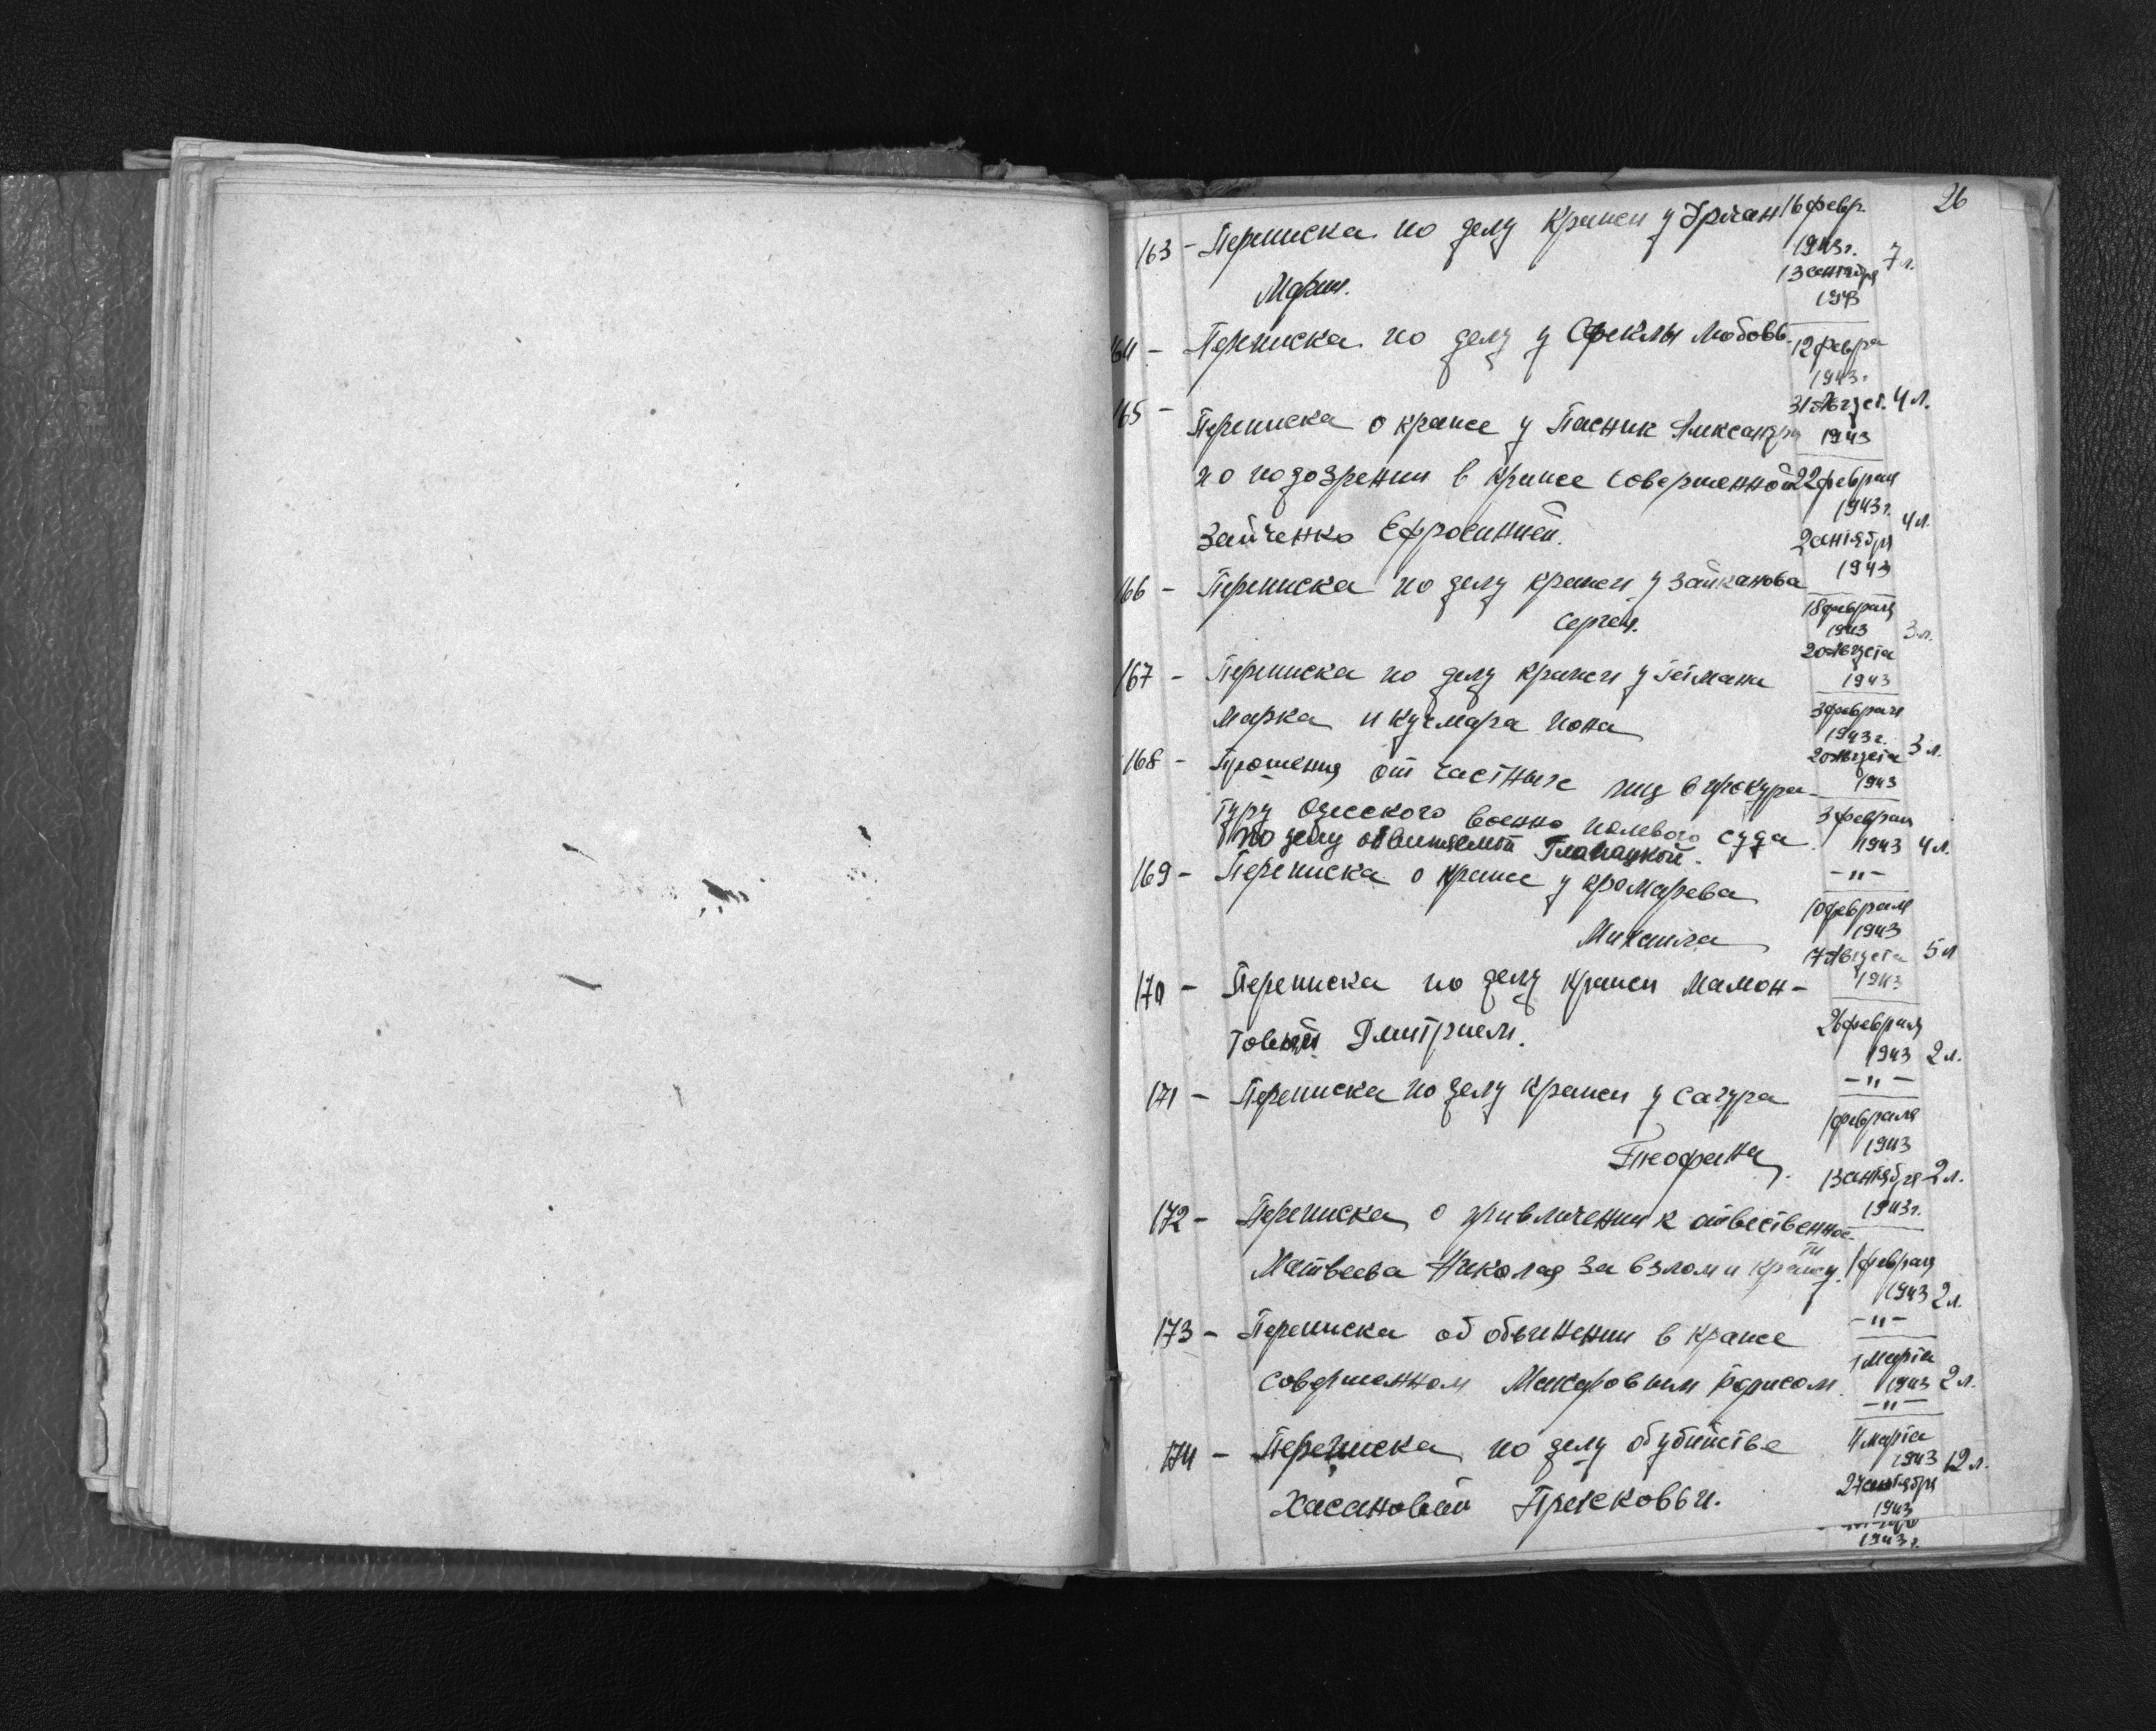 26
163 - Переписка по делу кражи у Урман 16 февр.
1943 г. 7 л.
Марии. 13 сентября
1943
164 - Переписка по делу у Феклы Любовь 12 февра
1943 г.
31 август. 4 л.
165 - Переписка о краже у Пасник Александры 1943
и о подозрении в краже совершенной 22 февраля
1943 г. 4 л.
Зайченко Ефросинией. 2 сентября
1943
166 - Переписка по делу кражи у Зайканова
18 февраля
Сергея. 1943 3 л.
20 августа
167 - Переписка по делу кражи у Гетмана 1943
Марка и Кучмара Иона 3 февраля
1943 г. 3 л.
20 августа
168 - Прошения от частных лиц в прокура- 1943
туру Одесского военно полевого суда 3 февраля
по делу обвиняемой Гловацкой. 1943 4 л.
169 - Переписка о краже у Кромарева - " -
10 февраля
Михаила 1943
17 августа 5 л
170 - Переписка по делу кражи Мамон- 1943
товым Дмитрием. 26 февраля
1943 2 л.
171 - Переписка по делу кражи у Сагура - " -
1 февраля
1943
Теофана. 13 сентября 2 л.
172 - Переписка о привлечении к ответственнос- 1943 г.
ти
Матвеева Николая за взлом и кражу. 1 февраля
1943 2 л.
173 - Переписка об обвинении в краже - " -
1 марта
совершенном Макаровым Борисом. 1943 2 л.
- " -
174 - Переписка по делу об убийстве 4 марта
1943 12 л.
Хасановой Прасковьи. 27 сентября
1943
1943 г.